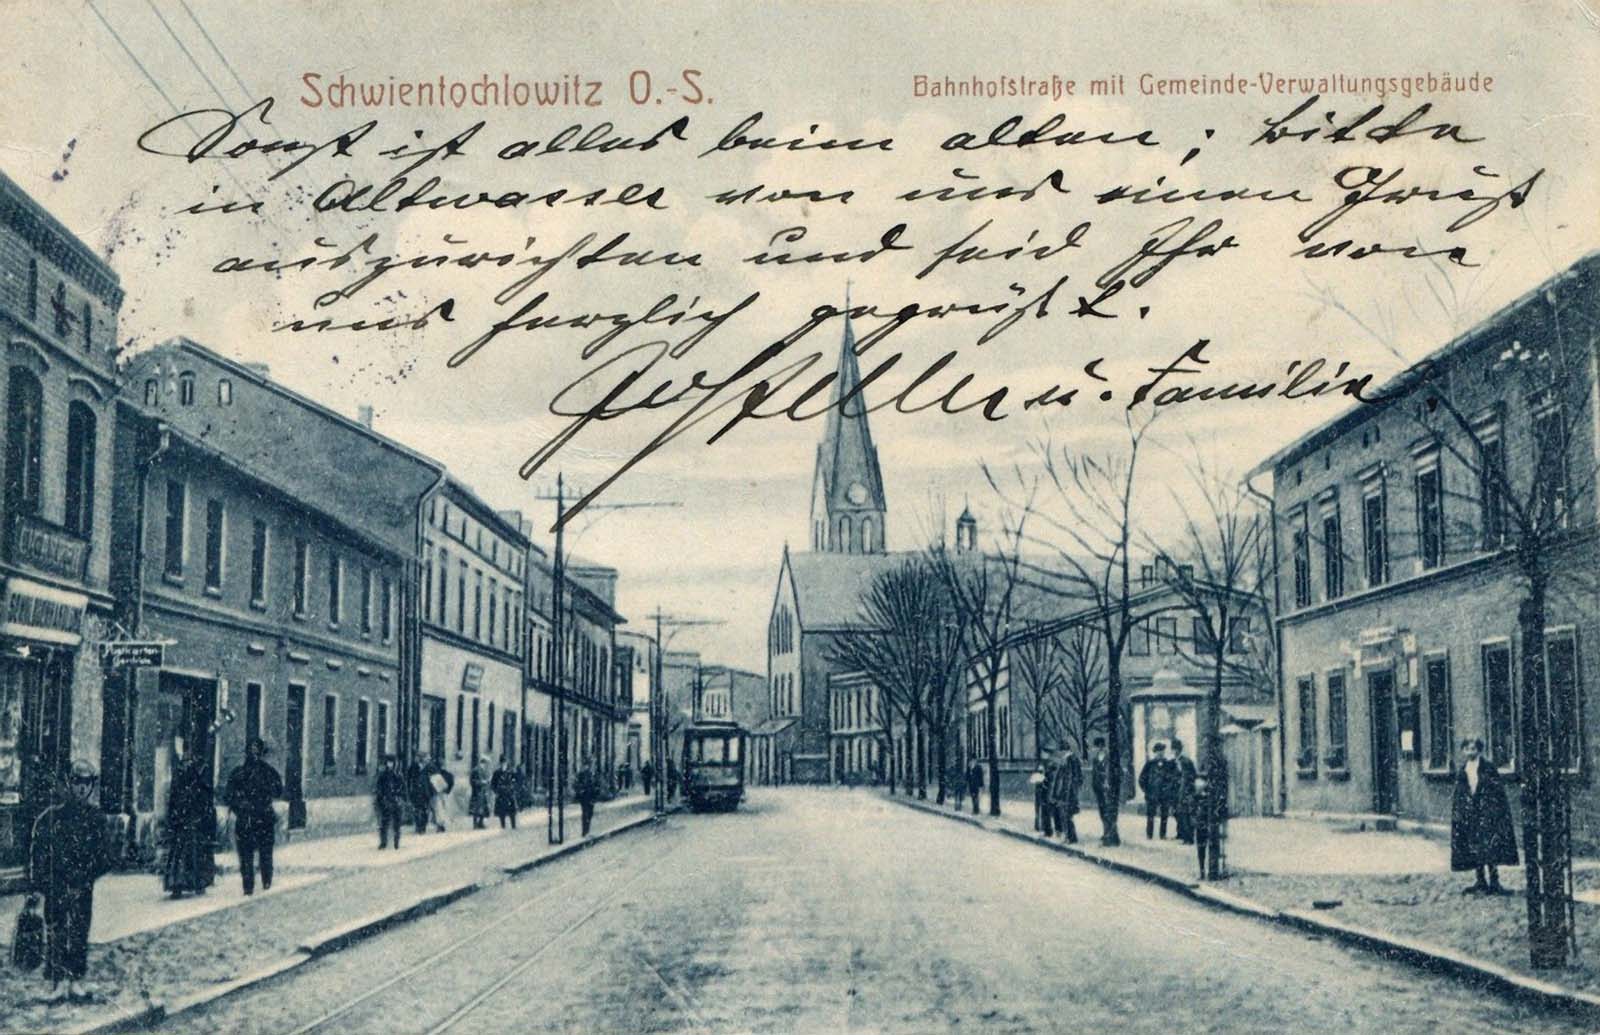 Schwientochlowitz O.-S.
Bahnhofstraße mit Gemeinde-Verwaltungsgebäude
Sonst ist alles beim alten; bitte
in Altwasser von uns einen Gruß
auszurichten und seid Ihr von
uns herzlich gegrüßt.
u. Familie
Postkarten-
Zentrale